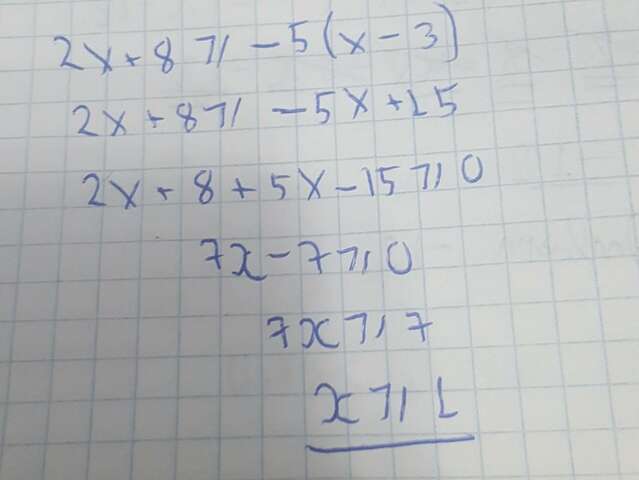 2x+8 ⩾ -5(x-3)
2x+8 ⩾ -5x+15
2x+8+5x-15 ⩾ 0
7x-7 ⩾ 0
7x ⩾ 7
x ⩾ 1